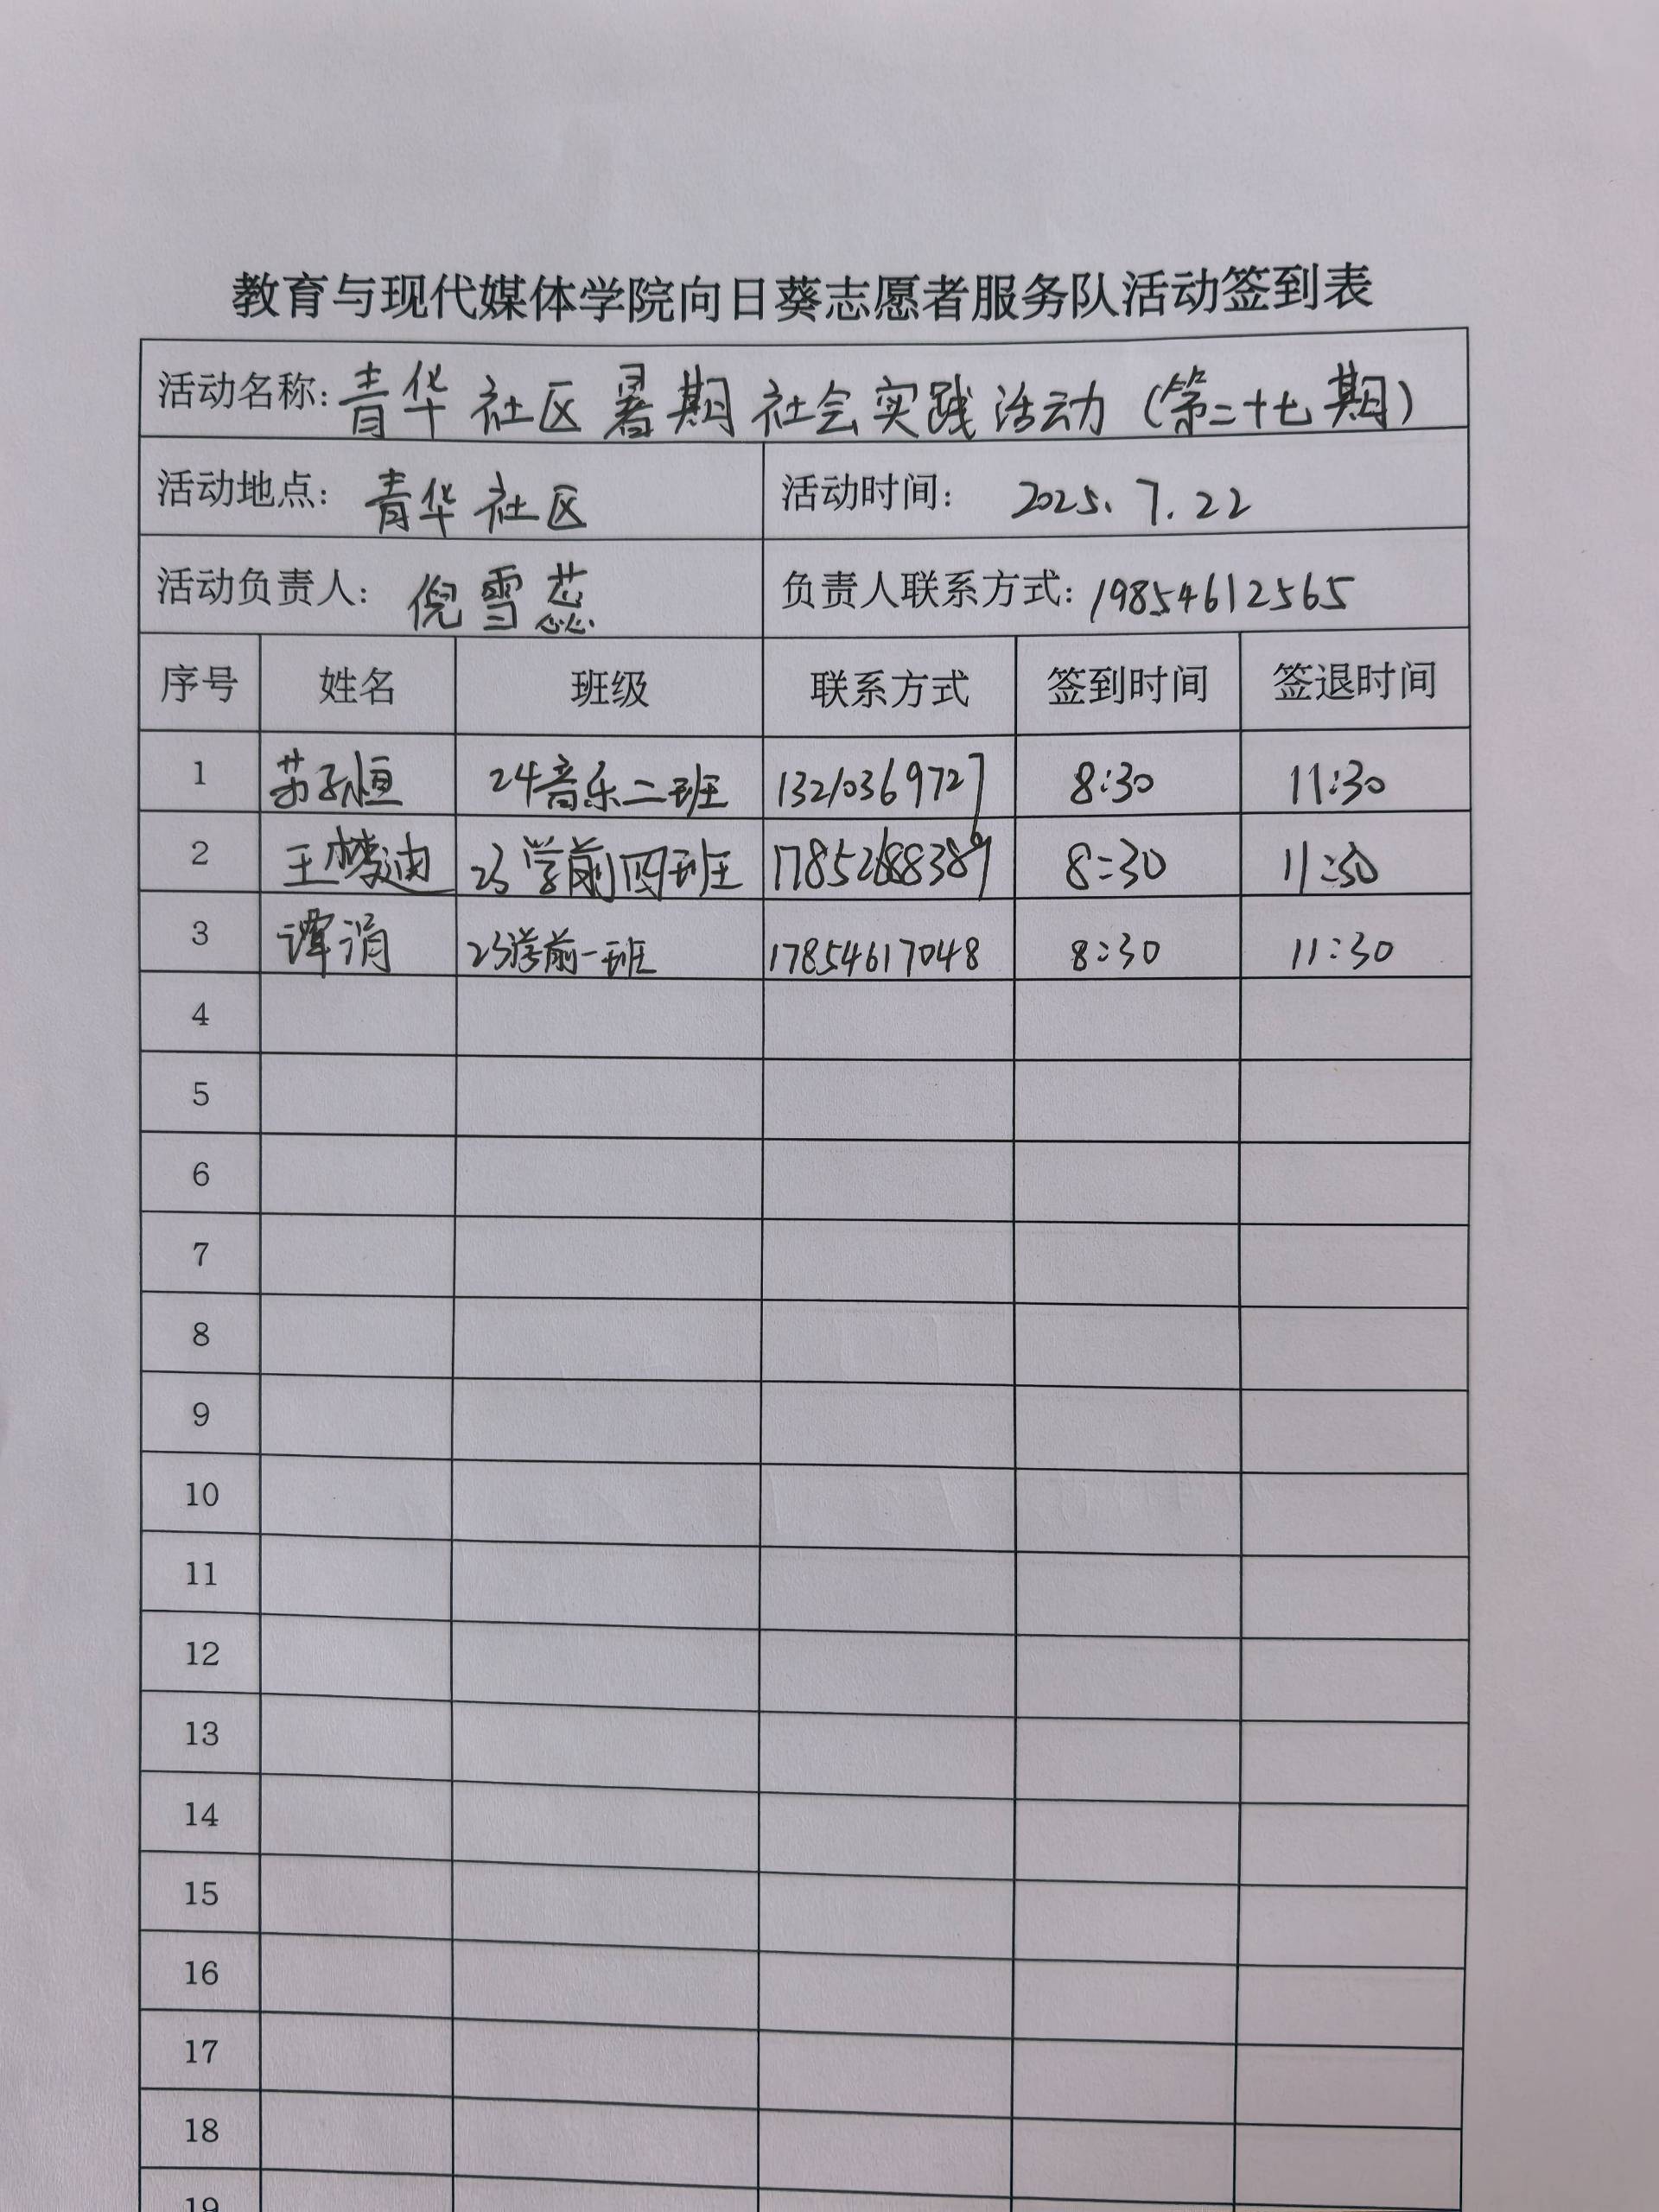 教育与现代媒体学院向日葵志愿者服务队活动签到表
活动名称:青华社区暑期社会实践活动(第二十七期)
活动地点: 青华社区 活动时间: 2025.7.22
活动负责人: 倪雪蕊 负责人联系方式:19854612565
序号 姓名 班级 联系方式 签到时间 签退时间
1 苏子恒 24音乐二班 13210369727 8:30 11:30
2 王梦迪 23学前四班 8:30 11:30
3 谭涓 23学前一班 17854617048 8:30 11:30
4
5
6
7
8
9
10
11
12
13
14
15
16
17
18
19